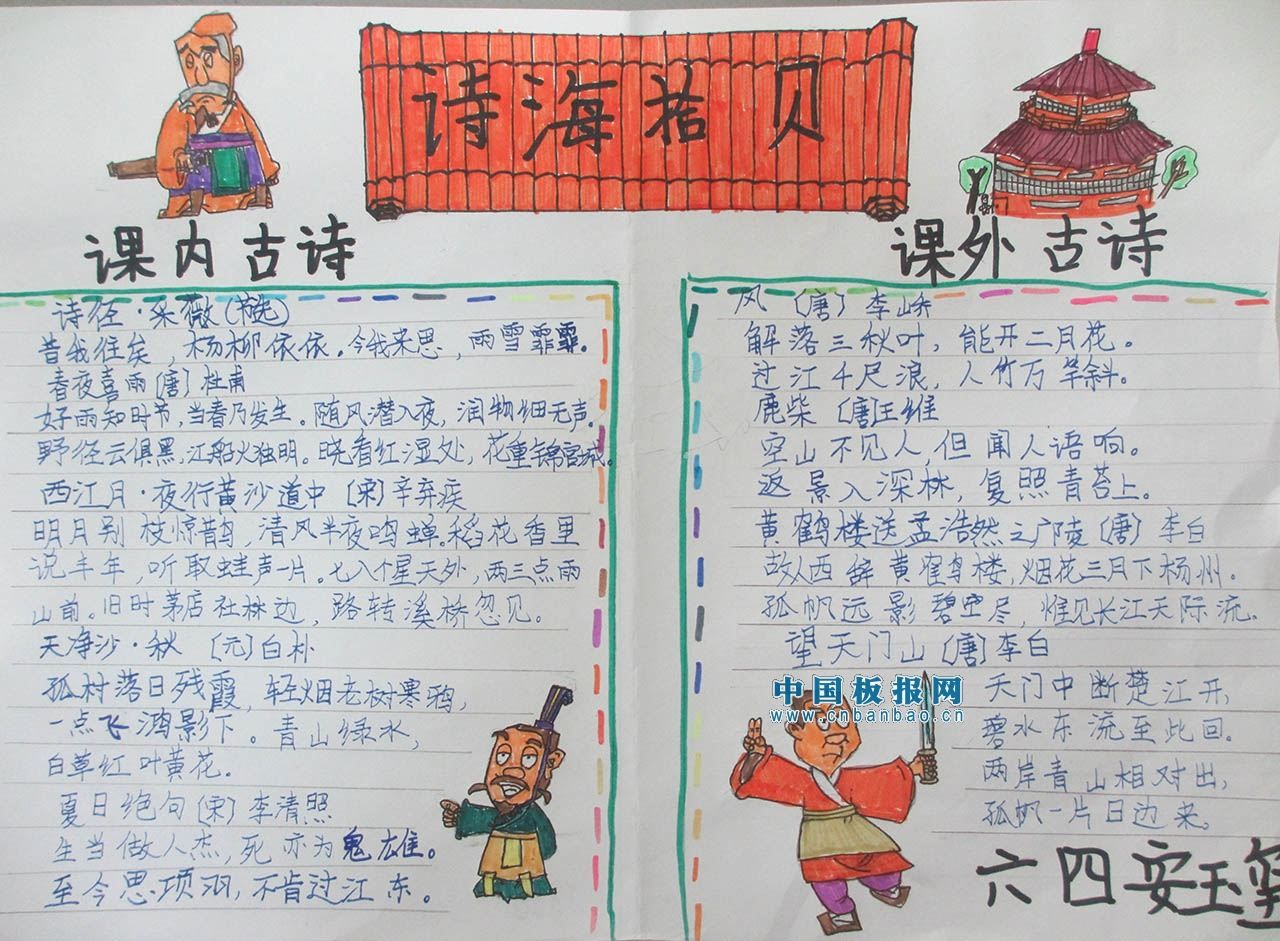 诗海拾贝
课内古诗
诗经·采薇(节选)
昔我往矣，杨柳依依。今我来思，雨雪霏霏。
春夜喜雨〔唐〕杜甫
好雨知时节，当春乃发生。随风潜入夜，润物细无声。
野径云俱黑，江船火独明。晓看红湿处，花重锦官城。
西江月·夜行黄沙道中〔宋〕辛弃疾
明月别枝惊鹊，清风半夜鸣蝉。稻花香里
说丰年，听取蛙声一片。七八个星天外，两三点雨
山前。旧时茅店社林边，路转溪桥忽见。
天净沙·秋〔元〕白朴
孤村落日残霞，轻烟老树寒鸦，
一点飞鸿影下。青山绿水，
白草红叶黄花。
夏日绝句〔宋〕李清照
生当做人杰，死亦为鬼雄。
至今思项羽，不肯过江东。
课外古诗
风〔唐〕李峤
解落三秋叶，能开二月花。
过江千尺浪，人竹万竿斜。
鹿柴〔唐〕王维
空山不见人，但闻人语响。
返景入深林，复照青苔上。
黄鹤楼送孟浩然之广陵〔唐〕李白
故人西辞黄鹤楼，烟花三月下杨州。
孤帆远影碧空尽，惟见长江天际流。
望天门山〔唐〕李白
天门中断楚江开，
碧水东流至此回。
两岸青山相对出，
孤帆一片日边来。
中国板报网
www.cnbanbao.cn
六四安玉